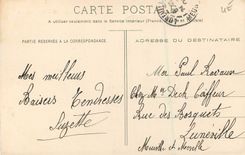 CARTE POSTALE
A utiliser seulement dans le Service Intérieur
PARTIE RÉSERVÉE A LA CORRESPONDANCE
ADRESSE DU DESTINATAIRE
Mes meilleurs
Baisers Tendresses
Suzette
Monsieur Paul
Chez Mr Dech Coiffeur
Rue des Bosquets
Lunéville
Meurthe et Moselle